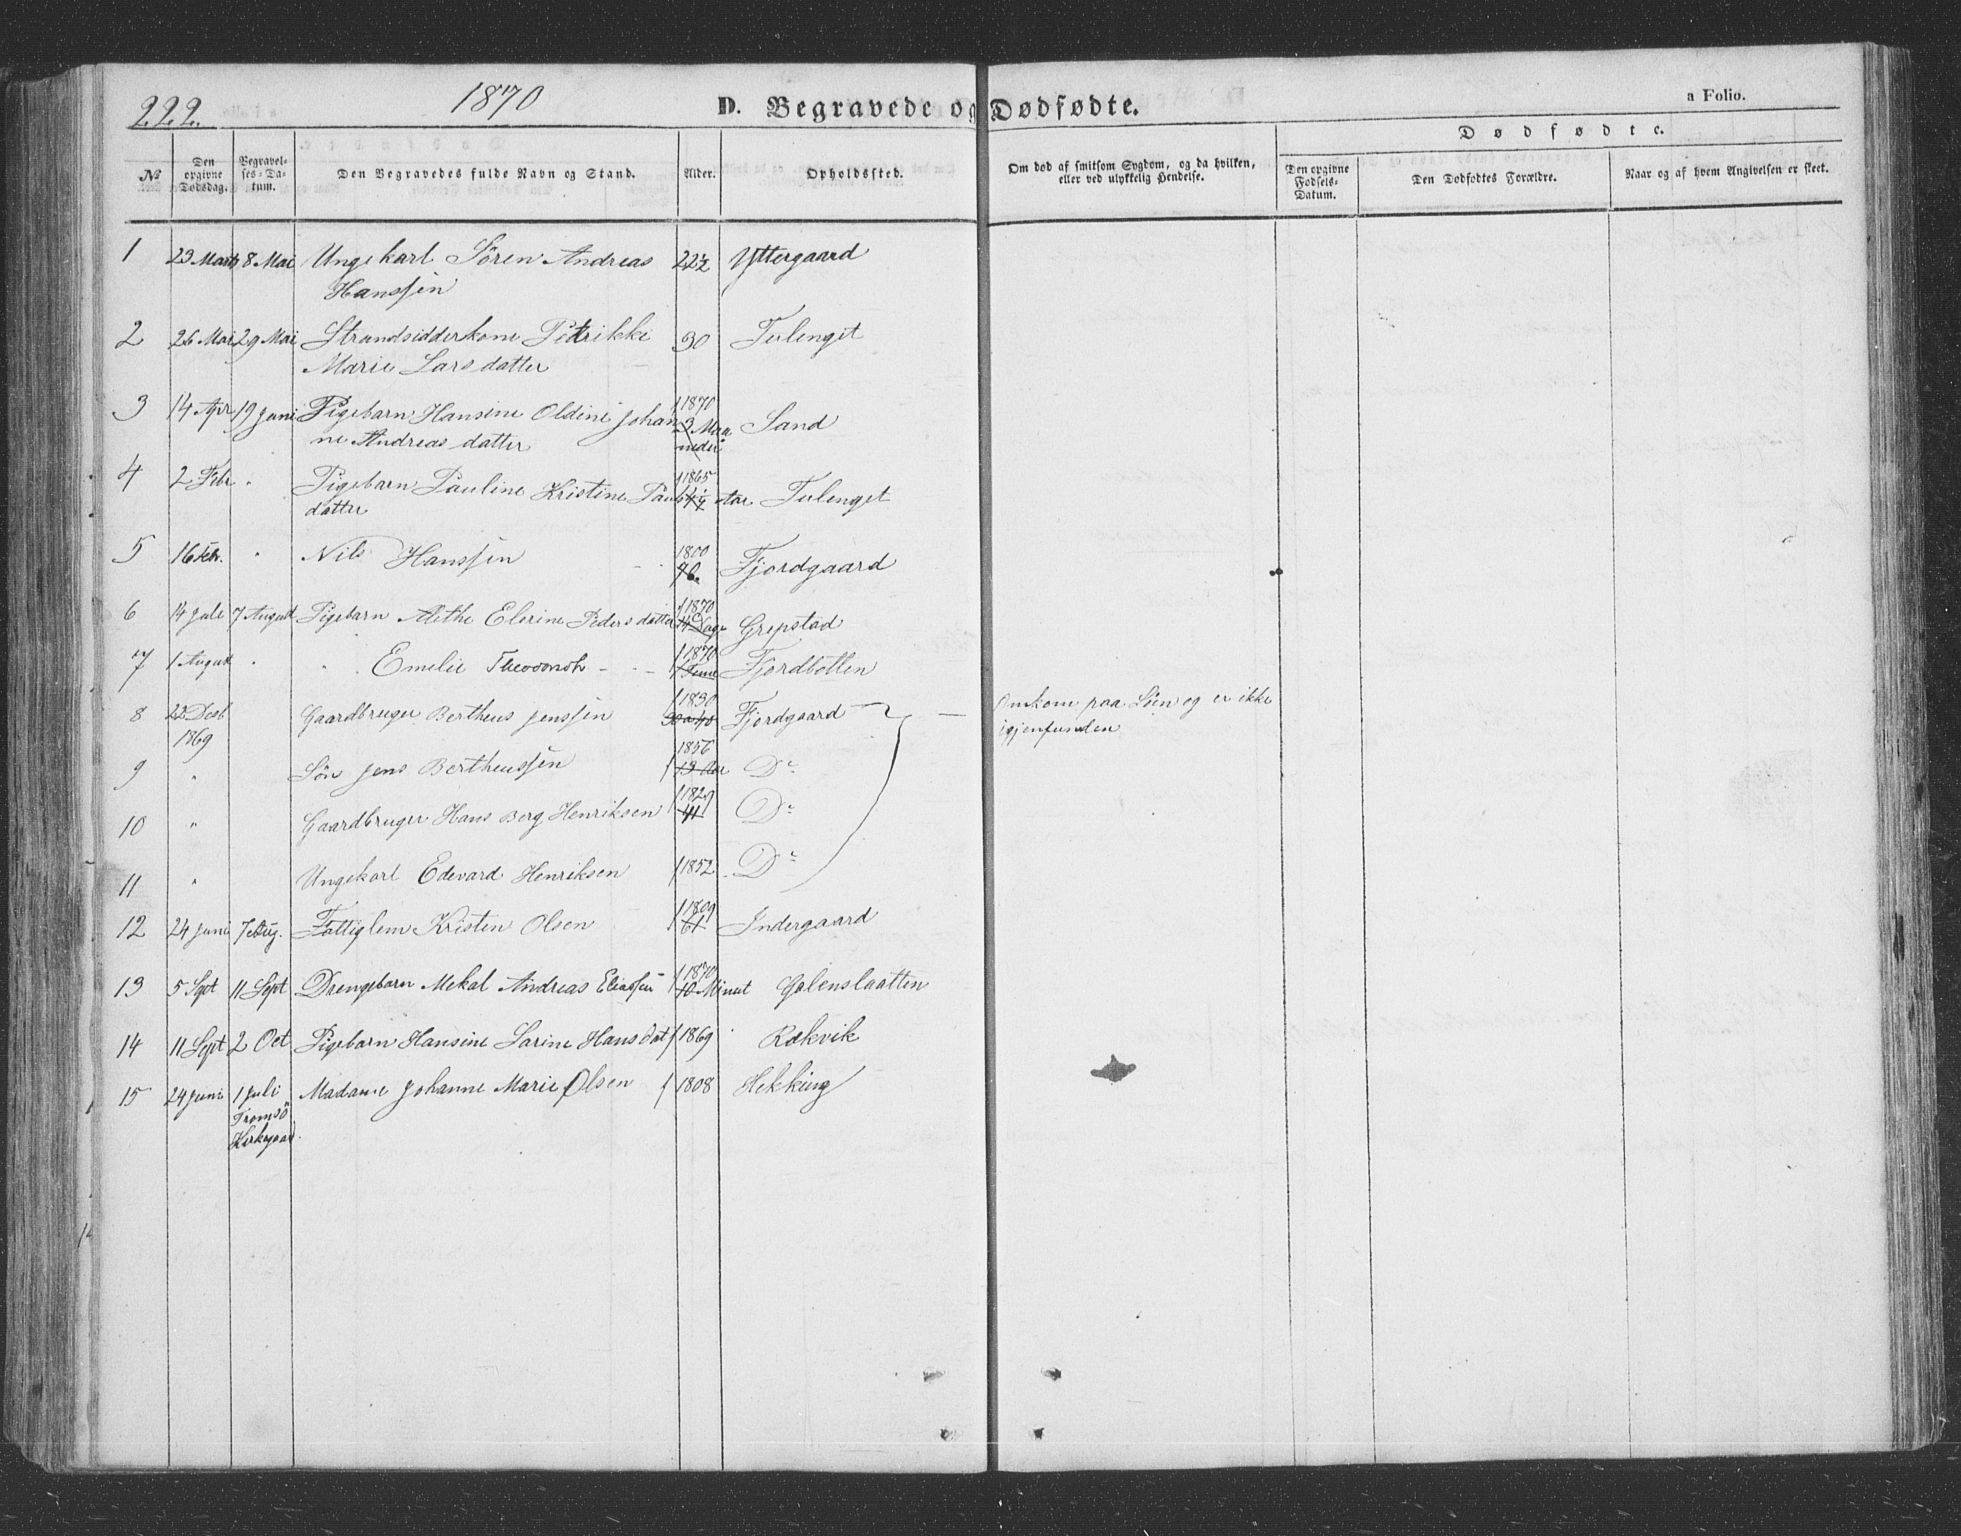 222.
1870
D. Begravede og Dødfødte.
a Folio.
Dødfødte.
No
Den opgivne Dødsdag.
Begravelses-Datum.
Den Begravedes fulde Navn og Stand.
Alder.
Opholdssted.
Om død af smitsom Sygdom, og da hvilken, eller ved ulykkelig Hendelse.
Den opgivne Fødsels-Datum.
Den Dødfødtes Forældre.
Naar og af hvem Angivelsen er skeet.
1 23 Marts 8 Mai Ungekarl Sören Andreas 22½ Yttergaard
Hanssen
2 26 Mai 29 Mai Strandsidderkone Petrikke 30 Tulenget
Marie Larsdatter
3 14 Apr 19 Juni Pigebarn Hansine Oldine Johan f 1870 3 Maa Sand
ne Andreasdatter neder
4 2 Febr " Pigebarn Pauline Kristine Pauls f 1865 4¼ Aar Tulenget
datter
5 16 Feb. " Nils Hanssen 1800 70. Fjordgaard
6 14 Juli 7 August Pigebarn Alethe Elerine Pedersdatter f 1870 14 Dage Grepstad
7 1 August " " Emelie - - f 1870 Fjordbotten
8 22 Desb Gaardbruger Bertheus Jenssen f 1830 30 a 40 Fjordgaard — Omkom paa Söen og er ikke
1869 igjenfunden
9 " Sön Jens Bertheussen f 1856 13 Aar Do
10 " Gaardbruger Hans Berg Henriksen f 1829 41 Do
11 " Ungekarl Edevard Henriksen f 1852. Do
12 24 Juni 7 Aug. Fattiglem Kristen Olsen f 1809 61 Indergaard
13 5 Sept 11 Sept Drengebarn Mekal Andreas Eliassen f 1870 10 Minut
14 11 Sept 2 Oct Pigebarn Hansine Sarine Hansdat f 1869 Rækvik
15 24 Juni 1 Juli Madame Johanne Marie Olsen f 1808 Hekking
Tromsö
Kirkegaard.